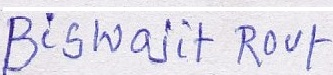 Biswajit Rout